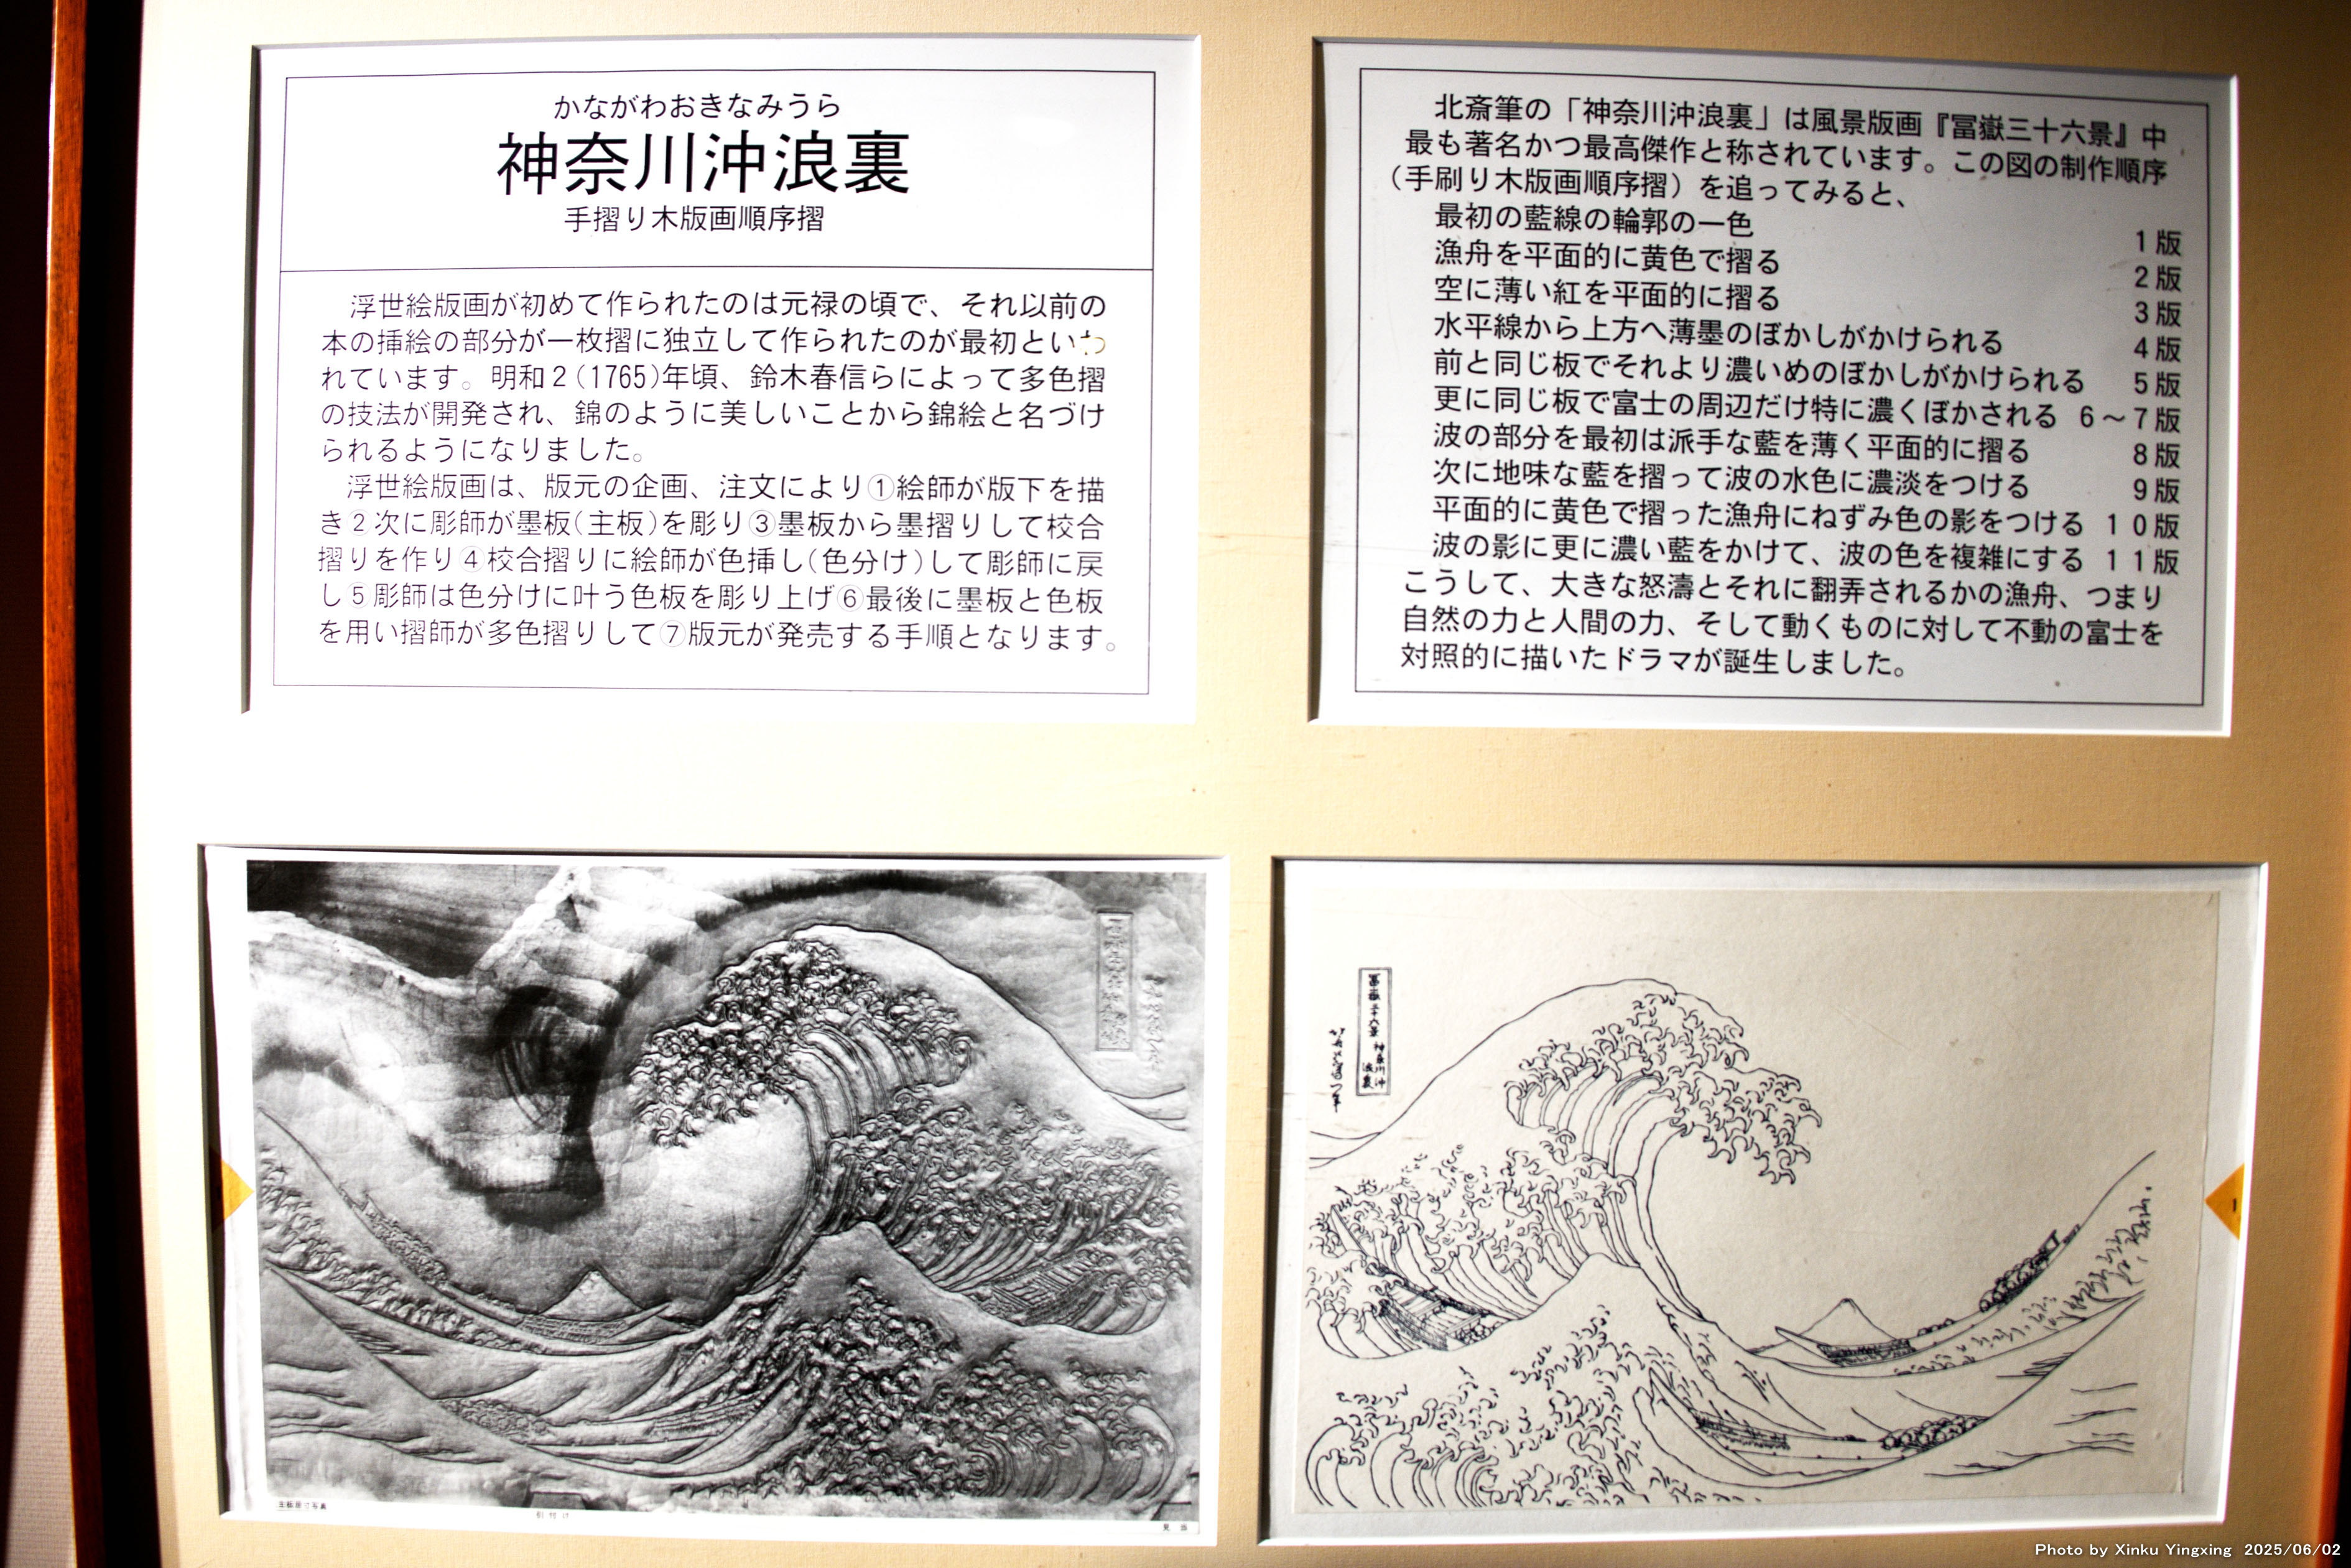 かながわおきなみうら
神奈川沖浪裏
手摺り木版画順序摺
浮世絵版画が初めて作られたのは元禄の頃で、それ以前の
本の挿絵の部分が一枚摺に独立して作られたのが最初といわ
れています。明和2(1765)年頃、鈴木春信らによって多色摺
の技法が開発され、錦のように美しいことから錦絵と名づけ
られるようになりました。
浮世絵版画は、版元の企画、注文により①絵師が版下を描
き②次に彫師が墨板(主板)を彫り③墨板から墨摺りして校合
摺りを作り④校合摺りに絵師が色挿し(色分け)して彫師に戻
し⑤彫師は色分けに叶う色板を彫り上げ⑥最後に墨板と色板
を用い摺師が多色摺りして⑦版元が発売する手順となります。
北斎筆の「神奈川沖浪裏」は風景版画『冨嶽三十六景』中
最も著名かつ最高傑作と称されています。この図の制作順序
(手刷り木版画順序摺)を追ってみると、
最初の藍線の輪郭の一色 1版
漁舟を平面的に黄色で摺る 2版
空に薄い紅を平面的に摺る 3版
水平線から上方へ薄墨のぼかしがかけられる 4版
前と同じ板でそれより濃いめのぼかしがかけられる 5版
更に同じ板で富士の周辺だけ特に濃くぼかされる 6～7版
波の部分を最初は派手な藍を薄く平面的に摺る 8版
次に地味な藍を摺って波の水色に濃淡をつける 9版
平面的に黄色で摺った漁舟にねずみ色の影をつける 10版
波の影に更に濃い藍をかけて、波の色を複雑にする 11版
こうして、大きな怒濤とそれに翻弄されるかの漁舟、つまり
自然の力と人間の力、そして動くものに対して不動の富士を
対照的に描いたドラマが誕生しました。
主板原寸写真
引付け
見当
冨嶽三十六景 神奈川沖
浪裏
Photo by Xinku Yingxing 2025/06/02